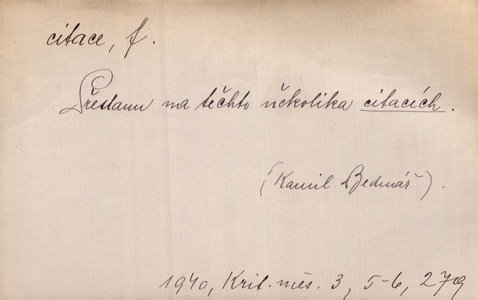 citace, f.
Přestanu na těchto několika citacích.
(Kamil Bednář).
1940, Krit. měs. 3, 5-6, 279